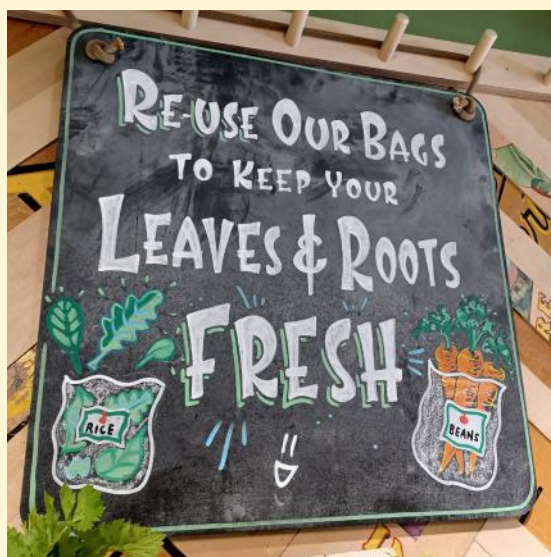 RE-USE OUR BAGS
TO KEEP YOUR
LEAVES & ROOTS
FRESH
RICE
BEANS